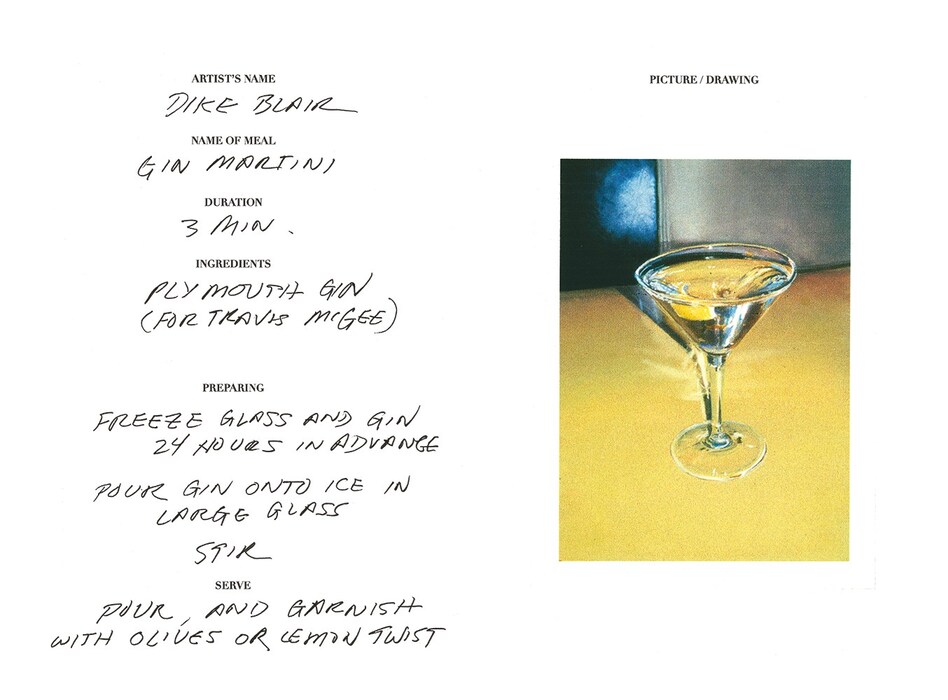 ARTIST'S NAME
DIKE BLAIR
NAME OF MEAL
GIN MARTINI
DURATION
3 MIN.
INGREDIENTS
PLYMOUTH GIN
(FOR TRAVIS McGEE)
PREPARING
FREEZE GLASS AND GIN
24 HOURS IN ADVANGE
POUR GIN ONTO ICE IN
LARGE GLASS
STIR
SERVE
POUR, AND GARNISH
WITH OLIVES OR LEMON TWIST
PICTURE / DRAWING